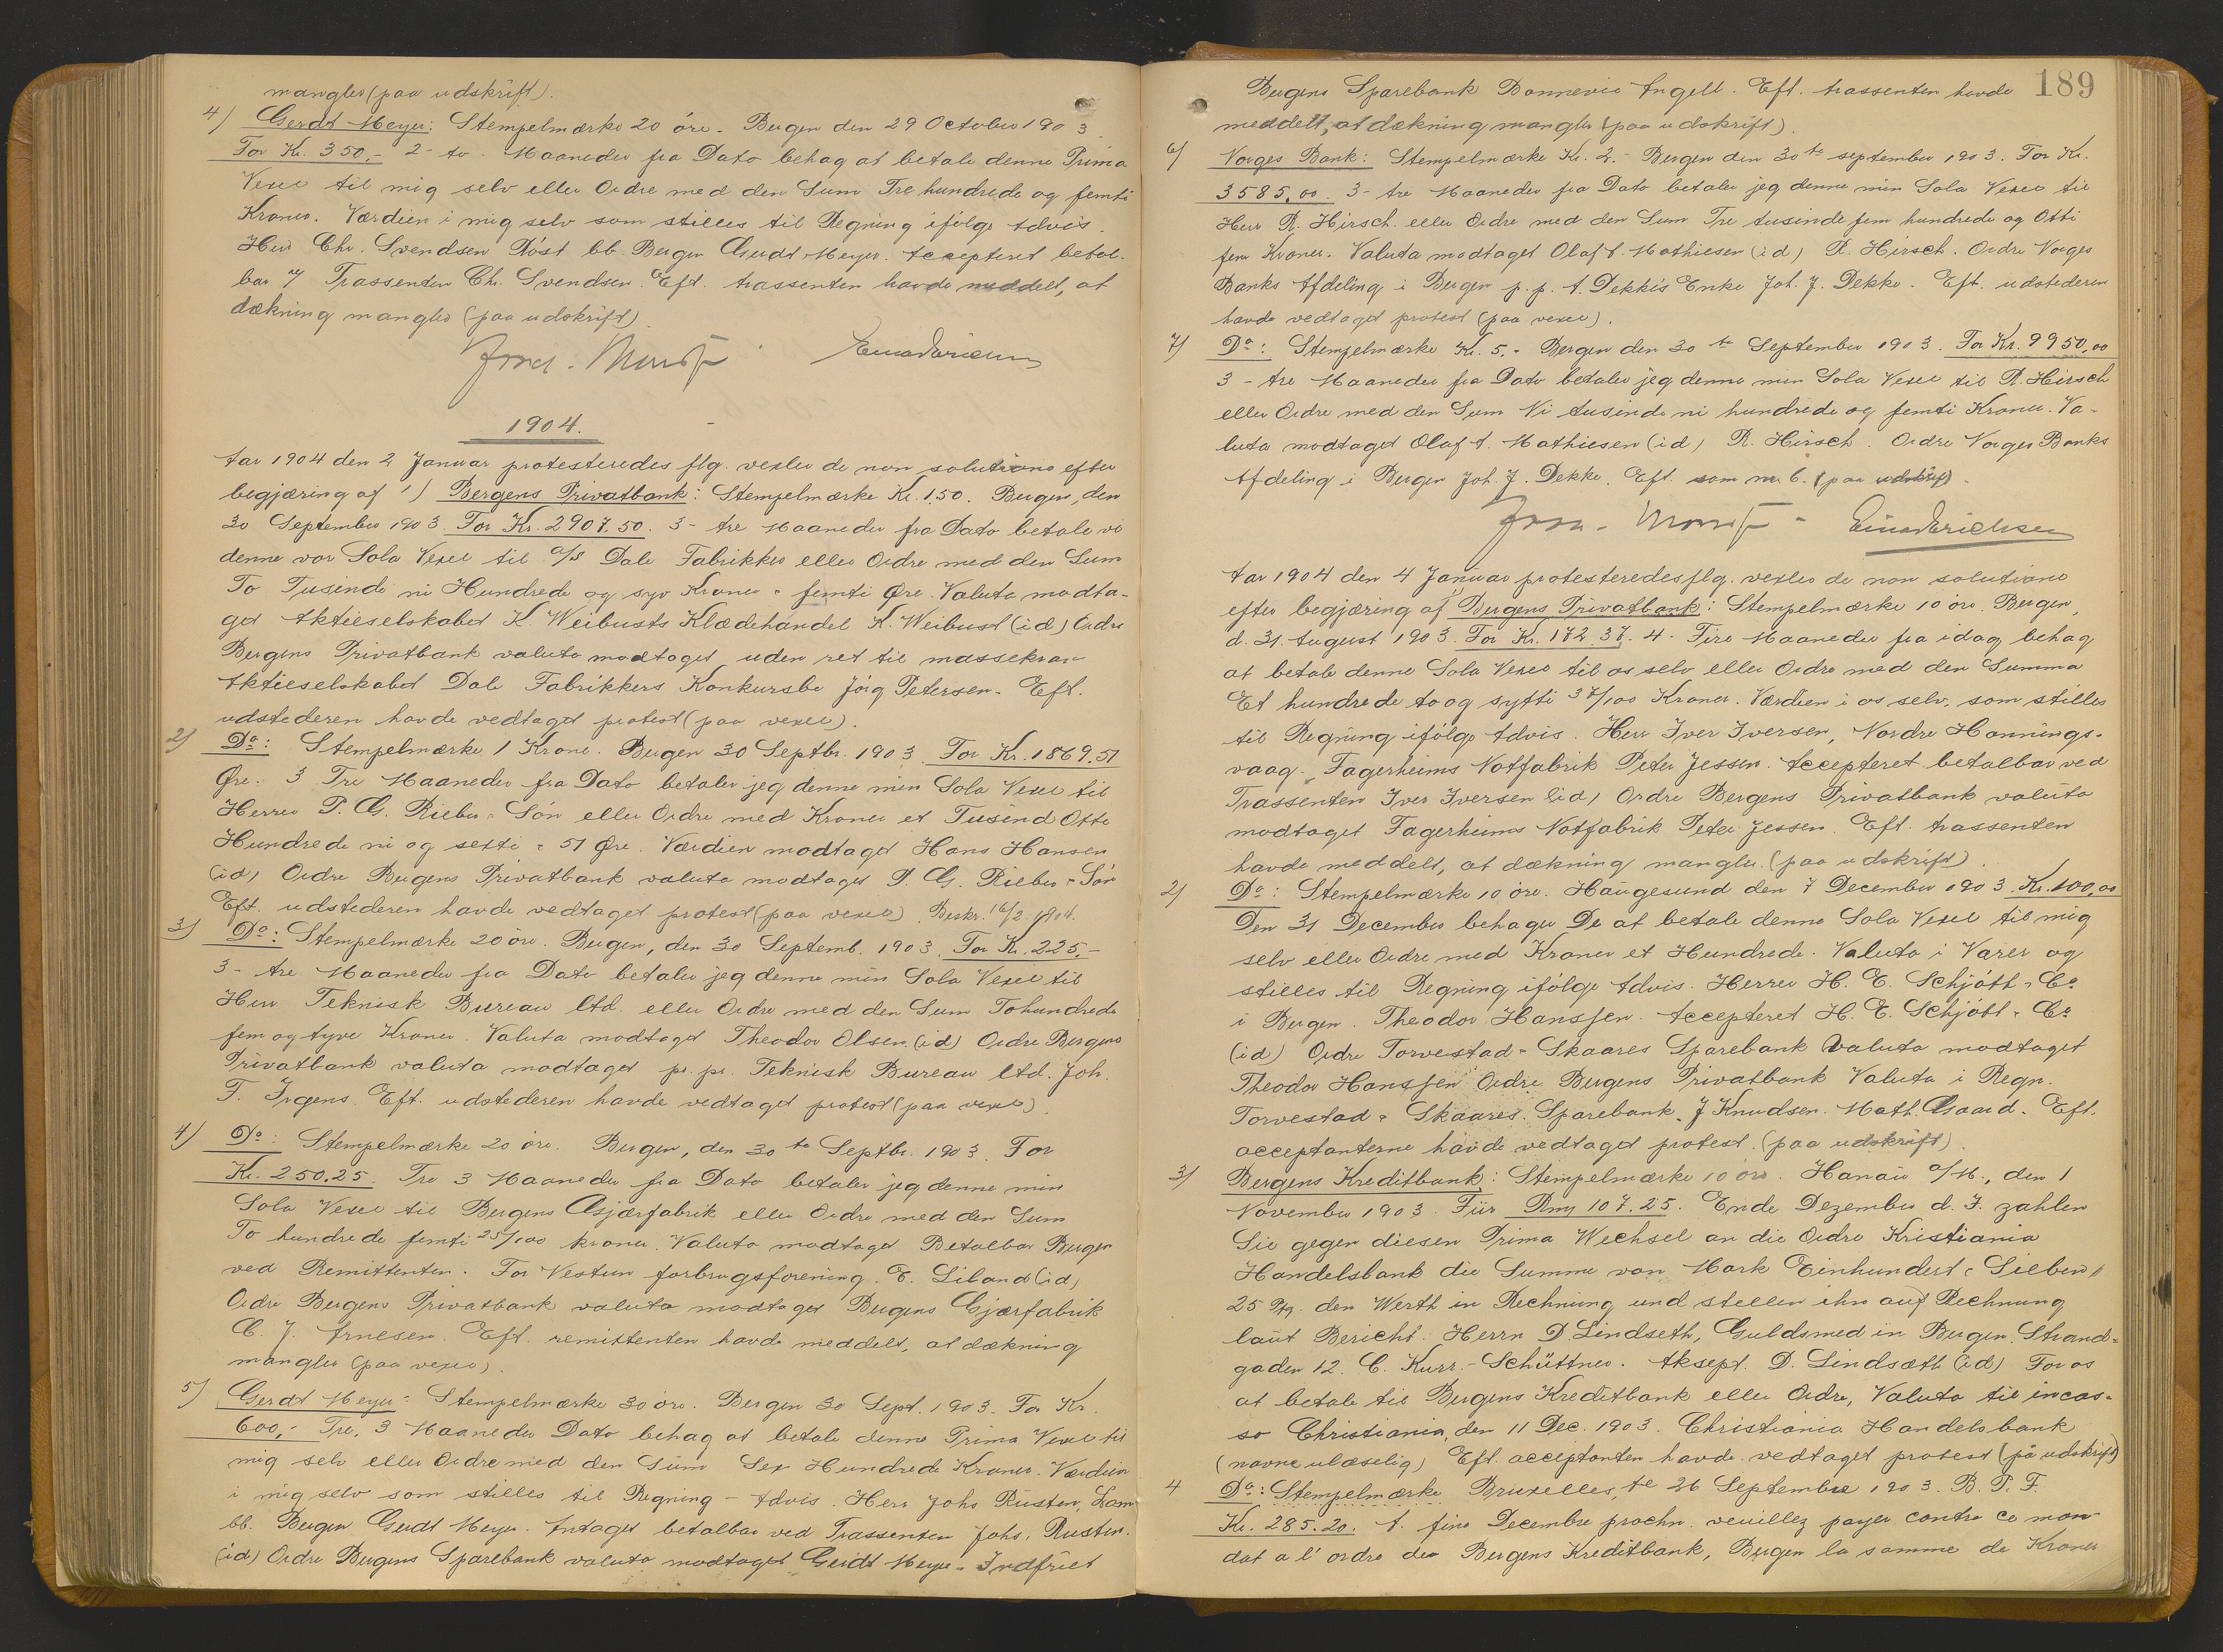 mangler (paa udskrift).
4) Gerdt Meyer: Stempelmærke 20 öre. Bergen den 29 October 1903.
For Kr. 350,- 2- to. Maaneder fra Dato behag at betale denne Prima
Vexel til mig selv eller Ordre med den Sum Tre hundrede og femti
Kroner. Værdien i mig selv som stilles til Regning ifölge Advis.
Herr Chr. Svendsen Röst bb. Bergen Gerdt Meyer. Accepteret betal-
bar Trassenten Chr. Svendsen. Eft. trassenten havde meddelt, at
dækning mangler (paa udskrift)
1904.
Aar 1904 den 2 Januar protesteredes flg. vexler de non solutione efter
begjæring af 1) Bergens Privatbank: Stempelmærke Kr. 1.50. Bergen, den
30 September 1903. For Kr. 2907.50. 3- tre Maaneder fra Dato betale vi
denne vor Sola Vexel til A/S Dale Fabrikker eller Ordre med den Sum
To Tusinde ni Hundrede og syv Kroner = femti Øre. Valuta modta-
get Aktieselskabet K. Weibusts Klædehandel K. Weibust (id) Ordre
Bergens Privatbank valuta modtaget uden ret til massekrav
Aktieselskabet Dale Fabrikkers Konkursbo Jörg Petersen. Eft.
udstederen havde vedtaget protest (paa vexel).
2) Do: Stempelmærke 1 Krone. Bergen 30 Septbr. 1903. For Kr. 1869.51
Øre. 3 Tre Maaneder fra Dato betaler jeg denne min Sola Vexel til
Herrer P. G. Rieber = Sön eller Ordre med Kroner et Tusind Otte
Hundrede ni og sexti = 51 Øre. Værdien modtaget Hans Hansen
(id) Ordre Bergens Privatbank valuta modtaget P. G. Rieber = Sön
Eft. udstederen havde vedtaget protest (paa vexel). Beskr. 16/2 1904.
3) Do: Stempelmærke 20 öre. Bergen, den 30 Septemb. 1903. For Kr. 225,-
3- tre Maaneder fra Dato betaler jeg denne min Sola Vexel til
Herr Teknisk Bureau ltd. eller Ordre med den Sum Tohundrede
fem og tyve Kroner. Valuta modtaget Theodor Olsen (id) Ordre Bergens
Privatbank valuta modtaget pr. pr. Teknisk Bureau ltd. Joh.
F. Irgens. Eft. udstederen havde vedtaget protest (paa vexel).
4) Do: Stempelmærke 20 öre. Bergen, den 30 te Septbr. 1903. For
Kr. 250.25. Tre 3 Maaneder fra Dato betaler jeg denne min
Sola Vexel til Bergens Gjærfabrik eller Ordre med den Sum
To hundrede femti 25/100 kroner. Valuta modtaget Betalbar Bergen
ved Remittenten. For Vestun forbrugsforening. E. Liland (id)
Ordre Bergens Privatbank valuta modtaget Bergens Gjærfabrik
C. J. Arnesen. Eft. remittenten havde meddelt, at dækning
mangler (paa vexel).
5) Gerdt Meyer: Stempelmærke 30 öre. Bergen 30 Sept. 1903. For Kr.
600,- Tre, 3 Maaneder Dato behag at betale denne Prima Vexel til
mig selv eller Ordre med den Sum Sex Hundrede Kroner. Værdien
i mig selv som stilles til Regning - Advis. Herr Johs Rusten, Lom
bb. Bergen Gerdt Meyer. Antaget betalbar ved Trassenten Johs. Rusten.
(id) Ordre Bergens Sparebank valuta modtaget Gerdt Meyer. Indfriet
189
Bergens Sparebank Dannevig Angell. Eft. trassenten havde
meddelt, at dækning mangler (paa udskrift).
6) Norges Bank: Stempelmærke Kr. 2.- Bergen den 30te september 1903. For Kr.
3585,00. 3- tre Maaneder fra Dato betaler jeg denne min Sola Vexel til
Herr R. Hirsch. eller Ordre med den Sum Tre tusinde fem hundrede og Otti
fem Kroner. Valuta modtaget Olaf A. Mathiesen (id) R. Hirsch. Ordre Norges
Banks Afdeling i Bergen p. p. A. Dekkes Enke Joh. J. Dekke. Eft. udstederen
havde vedtaget protest (paa vexel).
7) Do: Stempelmærke Kr. 5.- Bergen den 30 te September 1903. For Kr. 9950,00
3 - tre Maaneder fra Dato betaler jeg denne min Sola Vexel til R. Hirsch
eller Ordre med den Sum Ni tusinde ni hundrede og femti Kroner. Va-
luta modtaget Olaf A. Mathiesen (id) R. Hirsch. Ordre Norges Banks
Afdeling i Bergen Joh. J. Dekke. Eft. som nr. 6. (paa udskrift).
Einar Erichsen
Aar 1904 den 4 Januar protesteredes flg. vexler de non solutione
efter begjæring af 1) Bergens Privatbank: Stempelmærke 10 öre. Bergen,
d. 31. August 1903. For Kr. 172.37. 4. Fire Maaneder fra idag behag
at betale denne Sola Vexel til os selv eller Ordre med den Summa
Et hundrede to og sytti 37/100 Kroner. Værdien i os selv, som stilles
til Regning ifölge Advis. Herr Iver Iversen, Nordre Honnings-
vaag. Fagerheims Notfabrik Peter Jessen. Accepteret betalbar ved
Trassenten Iver Iversen (id) Ordre Bergens Privatbank valuta
modtaget Fagerheims Notfabrik Peter Jessen. Eft. trassenten
havde meddelt, at dækning mangler. (paa udskrift).
2) Do: Stempelmærke 10 öre. Haugesund den 7 December 1903. Kr. 100,00
Den 31 December behager De at betale denne Sola Vexel til mig
selv eller Ordre med Kroner et Hundrede. Valuta i Varer og
stilles til Regning ifölge Advis. Herrer H. E. Schjött = Co
i Bergen. Theodor Hanssen. Accepteret H. E. Schjött = Co
(id) Ordre Torvestad = Skaares Sparebank Valuta modtaget
Theodor Hanssen Ordre Bergens Privatbank Valuta i Regn.
Torvestad = Skaares. Sparebank. J Knudsen. Math. Gaard. Eft.
acceptanterne havde vedtaget protest. (paa udskrift).
3) Bergens Kreditbank: Stempelmærke 10 öre. Hanau a/M., den 1
November 1903. Für Rmg 107.25. Ende Dezember d. J. zahlen
Sie gegen diesen Prima Wechsel an die Ordre Kristiania
Handelsbank die Summe von Mark Einhundert = Sieben
25 Pfg. den Werth in Rechnung und stellen ihn auf Rechnung
laut Bericht. Herrn D Lindseth, Guldsmed in Bergen. Strand-
gaden 12. C. Kurr.-Schüttner. Aksept. D. Lindsæth (id) For os
at betale til Bergens Kreditbank eller Ordre, Valuta til incas-
so Christiania, den 11 Dec. 1903. Christiania Handelsbank
(navne ulæselig) Eft. acceptanten havde vedtaget protest (på udskrift)
4 Do: Stempelmærke Bruxelles, te 26 Septembre 1903. B. P. F.
Kr. 285.20. A. fine Decembre prochn. veuillez payer contre ce man-
dat a l'ordre des Bergens Kreditbank, Bergen la somme de Kroner